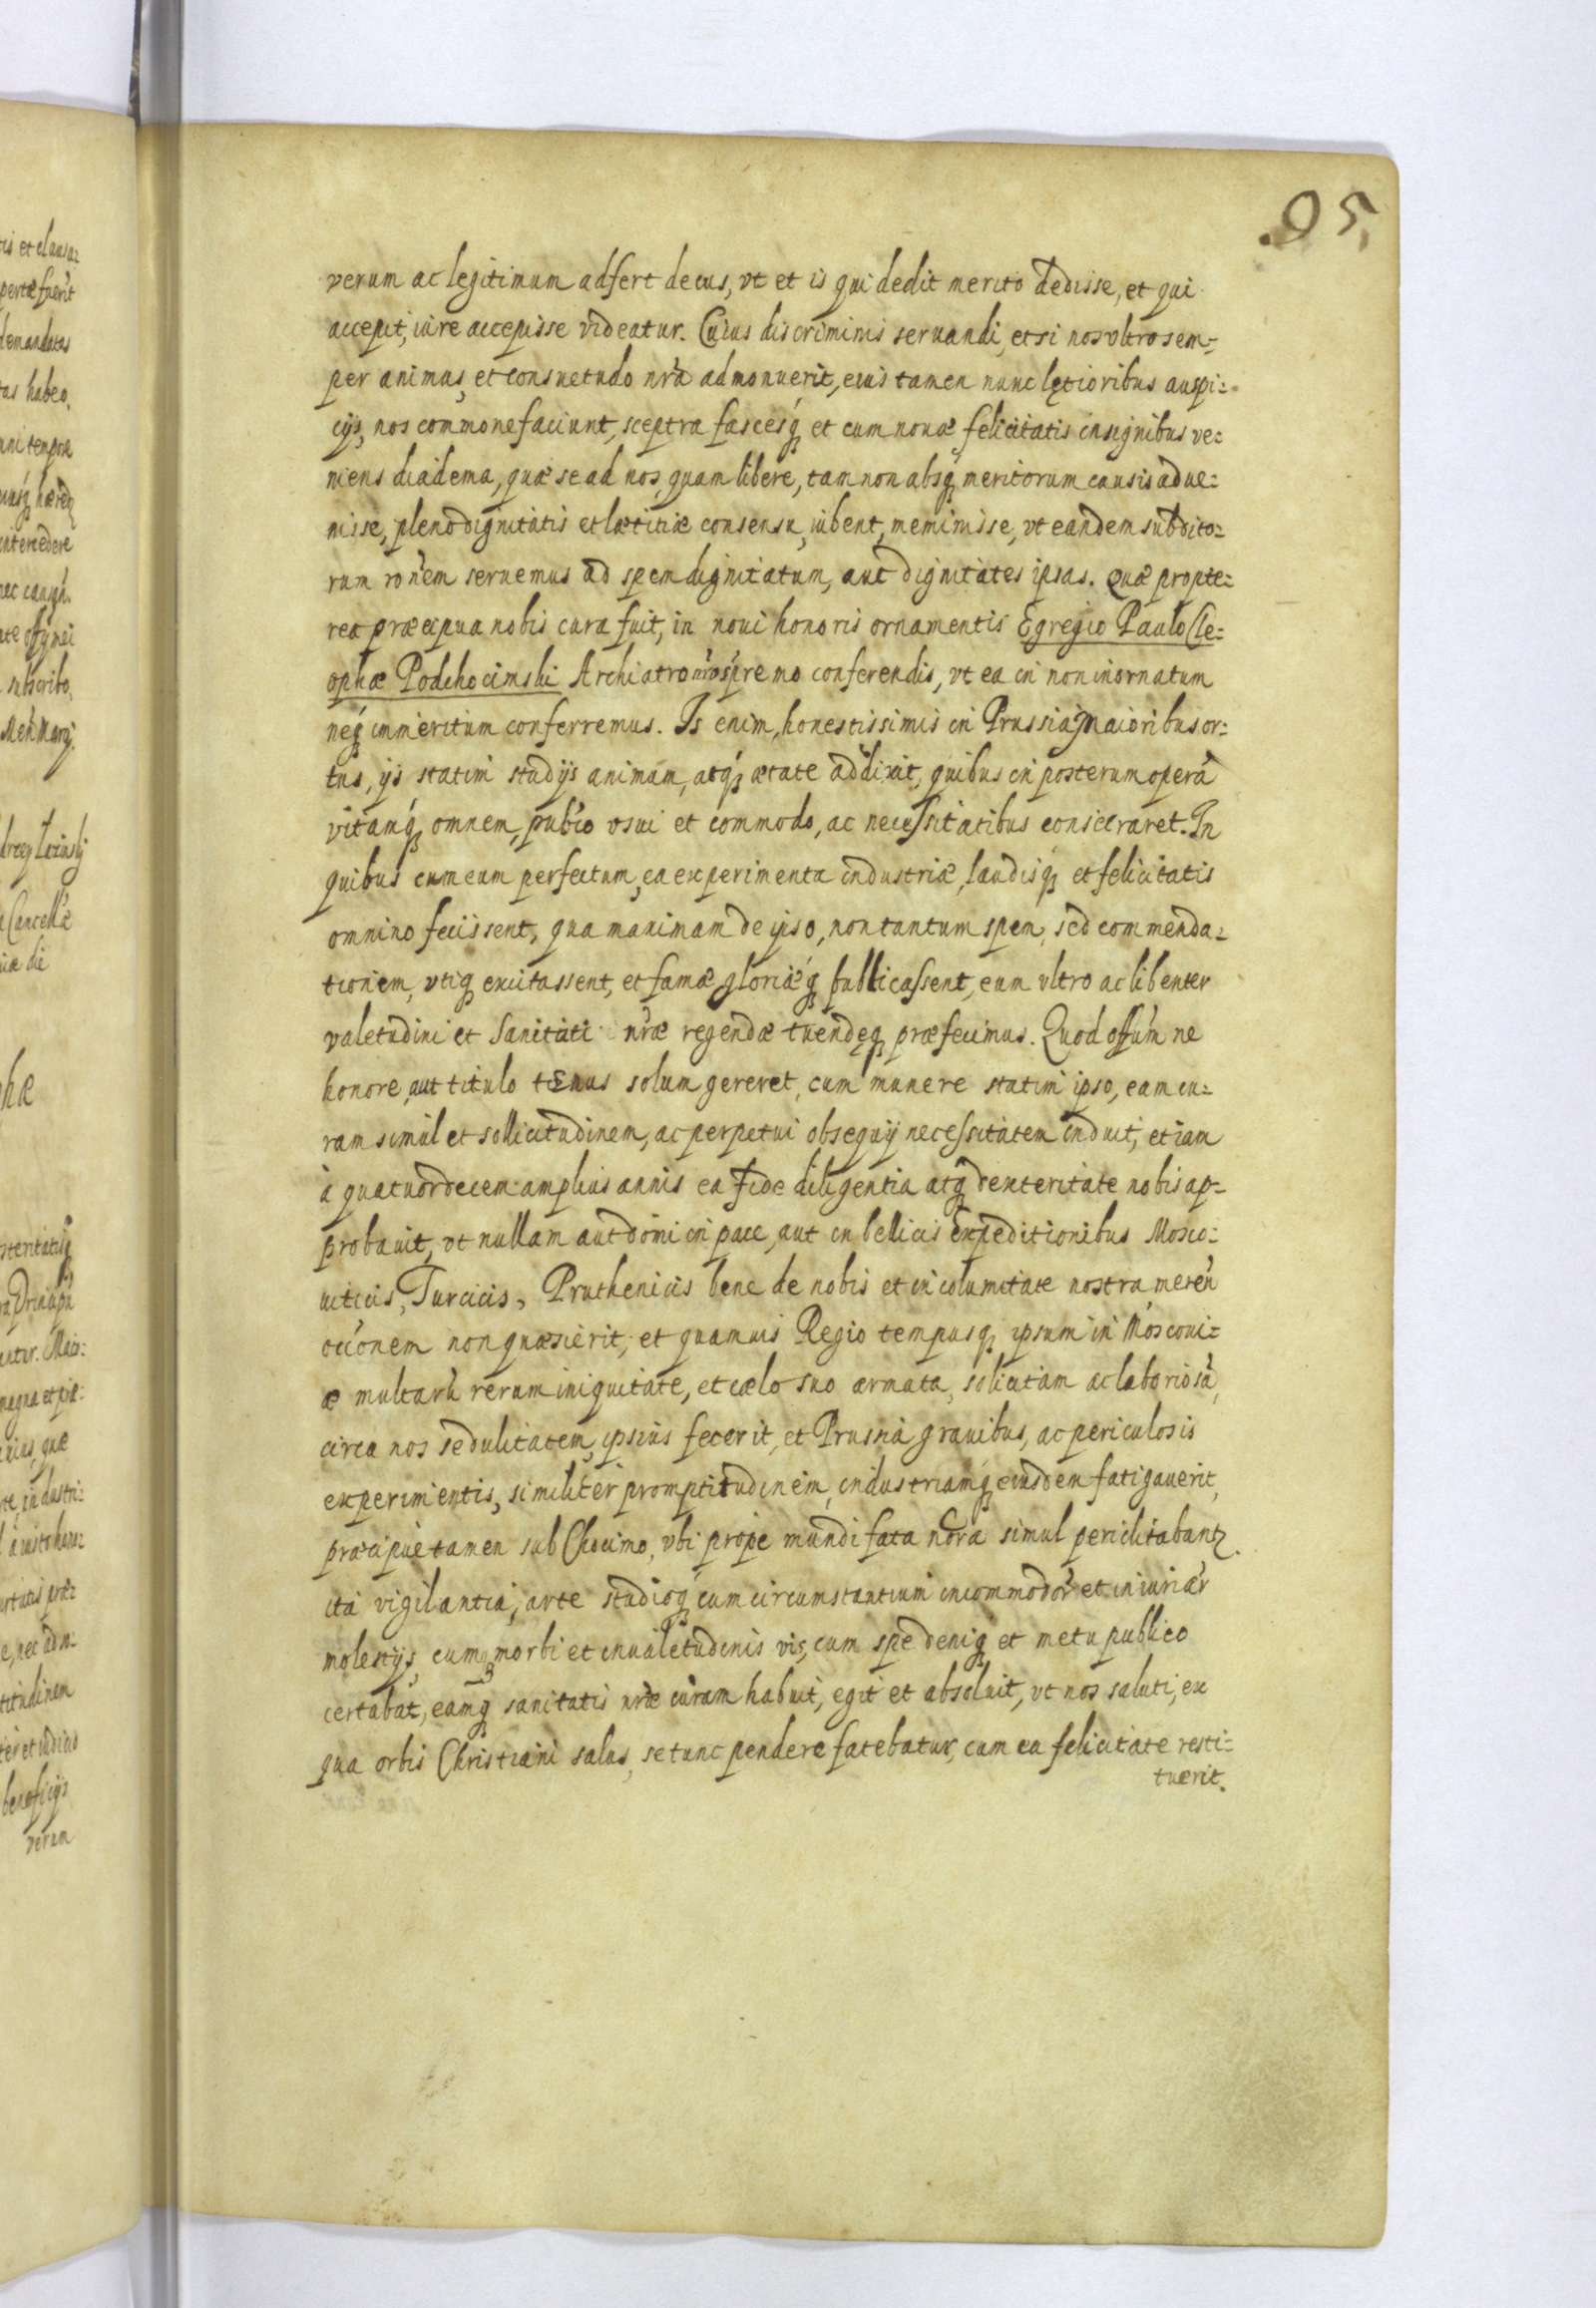 95.
verum ac legitimum adfert decus, vt et is qui dedit merito dedisse, et qui
accepit, iure accepisse videatur. Cuius discriminis seruandi, etsi nos vltro sem=
per animus, et consuetudo nra admonuerit, eius tamen nunc lętioribus auspi=
cijs, nos commonefaciunt, sceptra fascesq et cum nouæ felicitatis insignibus ve=
niens diadema, quæ se ad nos, quam libere, tam non absq meritorum causis adue=
nisse, pleno dignitatis et lætitiæ consensu, iubent, meminisse, vt eandem subdito=
rum ronem seruemus ad spem dignitatum, aut dignitates ipsas. Quæ propte=
rea præcipua nobis cura fuit, in noui honoris ornamentis Egregio Paulo Cle=
ophæ Podchocimski Archiatro nro supremo conferendis, vt ea in non inornatum
neq immeritum conferremus. Is enim, honestissimis in Prussia Maioribus or=
tus, ijs statim studijs animum, atq ætate addixit, quibus in posterum operā
vitamq omnem, pubco vsui et commodo, ac necessitatibus consecraret. In
quibus cum eum perfectum, ea experimenta industriæ, laudisq et felicitatis
omnino fecissent, qua maximam de ipso, non tantum spem, sed commenda=
tionem, vtiq excitassent, et famæ gloriæq publicassent, eum vltro ac libenter
valetudini et Sanitati nræ regendæ tuendęq præfecimus. Quod offum ne
honore, aut titulo tenus solum gereret, cum munere statim ipso, eam cu=
ram simul et sollicitudinem, ac perpetui obsequij necessitatem induit, et iam
à quatuordecem amplius annis ea fide diligentia atq dexteritate nobis ap=
probauit, vt nullam aut domi in pace, aut in bellicis Expeditionibus Mosco=
uiticis, Turcicis, Pruthenicis bene de nobis et incolumitate nostra meren
occonem non quæsierit, et quamuis Regio tempusq ipsum in Moscoui=
æ multarū rerum iniquitate, et cælo suo armata, solicitam ac laboriosā,
circa nos sedulitatem, ipsius fecerit, et Prussia grauibus, ac periculosis
experimentis, similiter promptitudinem, industriamq eiusdem fatigauerit,
præcipue tamen sub Chocimo, vbi prope mundi fata nora simul periclitabantz
ita vigilantia, arte studioq cum circumstantium incommodor et iniuriar
molestijs, cumq morbi et inualetudinis vis, cum spe deniq et metu publico
certabat, eamq sanitatis nræ curam habuit, egit et absoluit, vt nos saluti, ex
qua orbis Christiani salus, se tunc pendere fatebatur, cum ea felicitate resti=
tuerit.